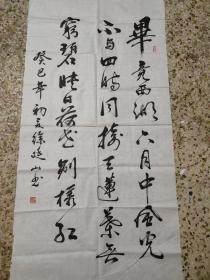 畢竟西湖六月中風光
不与四時同接天蓮葉無
窮碧映日荷花别樣紅
癸巳年初夏徐延山书